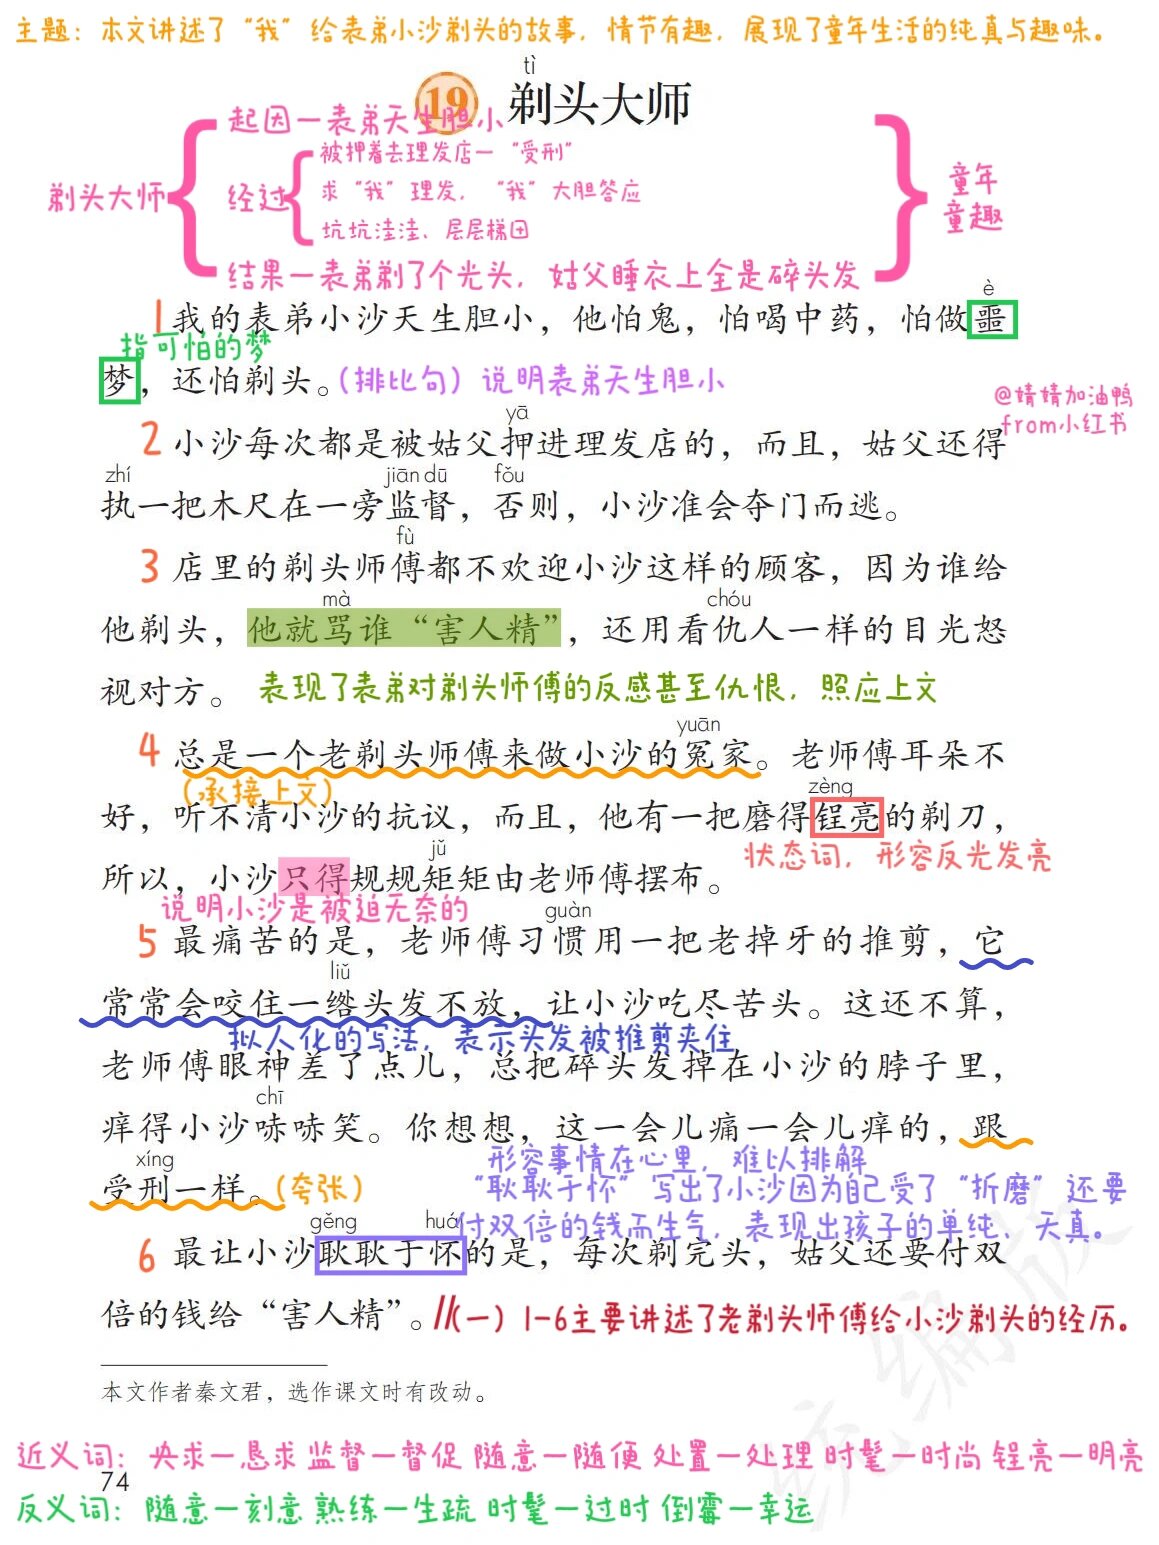 主题：本文讲述了“我”给表弟小沙剃头的故事，情节有趣，展现了童年生活的纯真与趣味。
tì
19 剃头大师
起因一表弟天生胆小
被押着去理发店一“受刑”
剃头大师
经过
求“我”理发，“我”大胆答应
童年
童趣
坑坑洼洼、层层梯田
结果一表弟剃了个光头，姑父睡衣上全是碎头发
è
1 我的表弟小沙天生胆小，他怕鬼，怕喝中药，怕做噩
指可怕的梦
梦，还怕剃头。(排比句）说明表弟天生胆小
@婧婧加油鸭
from小红书
yā
2 小沙每次都是被姑父押进理发店的，而且，姑父还得
zhí jiān dū fǒu
执一把木尺在一旁监督，否则，小沙准会夺门而逃。
fù
3 店里的剃头师傅都不欢迎小沙这样的顾客，因为谁给
mà chóu
他剃头，他就骂谁“害人精”，还用看仇人一样的目光怒
视对方。表现了表弟对剃头师傅的反感甚至仇恨，照应上文
yuān
4 总是一个老剃头师傅来做小沙的冤家。老师傅耳朵不
(承接上文)
zèng
好，听不清小沙的抗议，而且，他有一把磨得锃亮的剃刀，
状态词，形容反光发亮
jǔ
所以，小沙只得规规矩矩由老师傅摆布。
说明小沙是被迫无奈的
guàn
5 最痛苦的是，老师傅习惯用一把老掉牙的推剪，它
liǔ
常常会咬住一绺头发不放，让小沙吃尽苦头。这还不算，
拟人化的写法，表示头发被推剪夹住
老师傅眼神差了点儿，总把碎头发掉在小沙的脖子里，
chī
痒得小沙哧哧笑。你想想，这一会儿痛一会儿痒的，跟
xíng
受刑一样。(夸张）
形容事情在心里，难以排解
“耿耿于怀”写出了小沙因为自己受了“折磨”还要
付双倍的钱而生气，表现出孩子的单纯、天真。
gěng huá
6 最让小沙耿耿于怀的是，每次剃完头，姑父还要付双
倍的钱给“害人精”。//(一）1-6主要讲述了老剃头师傅给小沙剃头的经历。
本文作者秦文君，选作课文时有改动。
近义词：央求一恳求 监督一督促 随意一随便 处置一处理 时髦一时尚 锃亮一明亮
74
反义词：随意一刻意 熟练一生疏 时髦一过时 倒霉一幸运
统编版